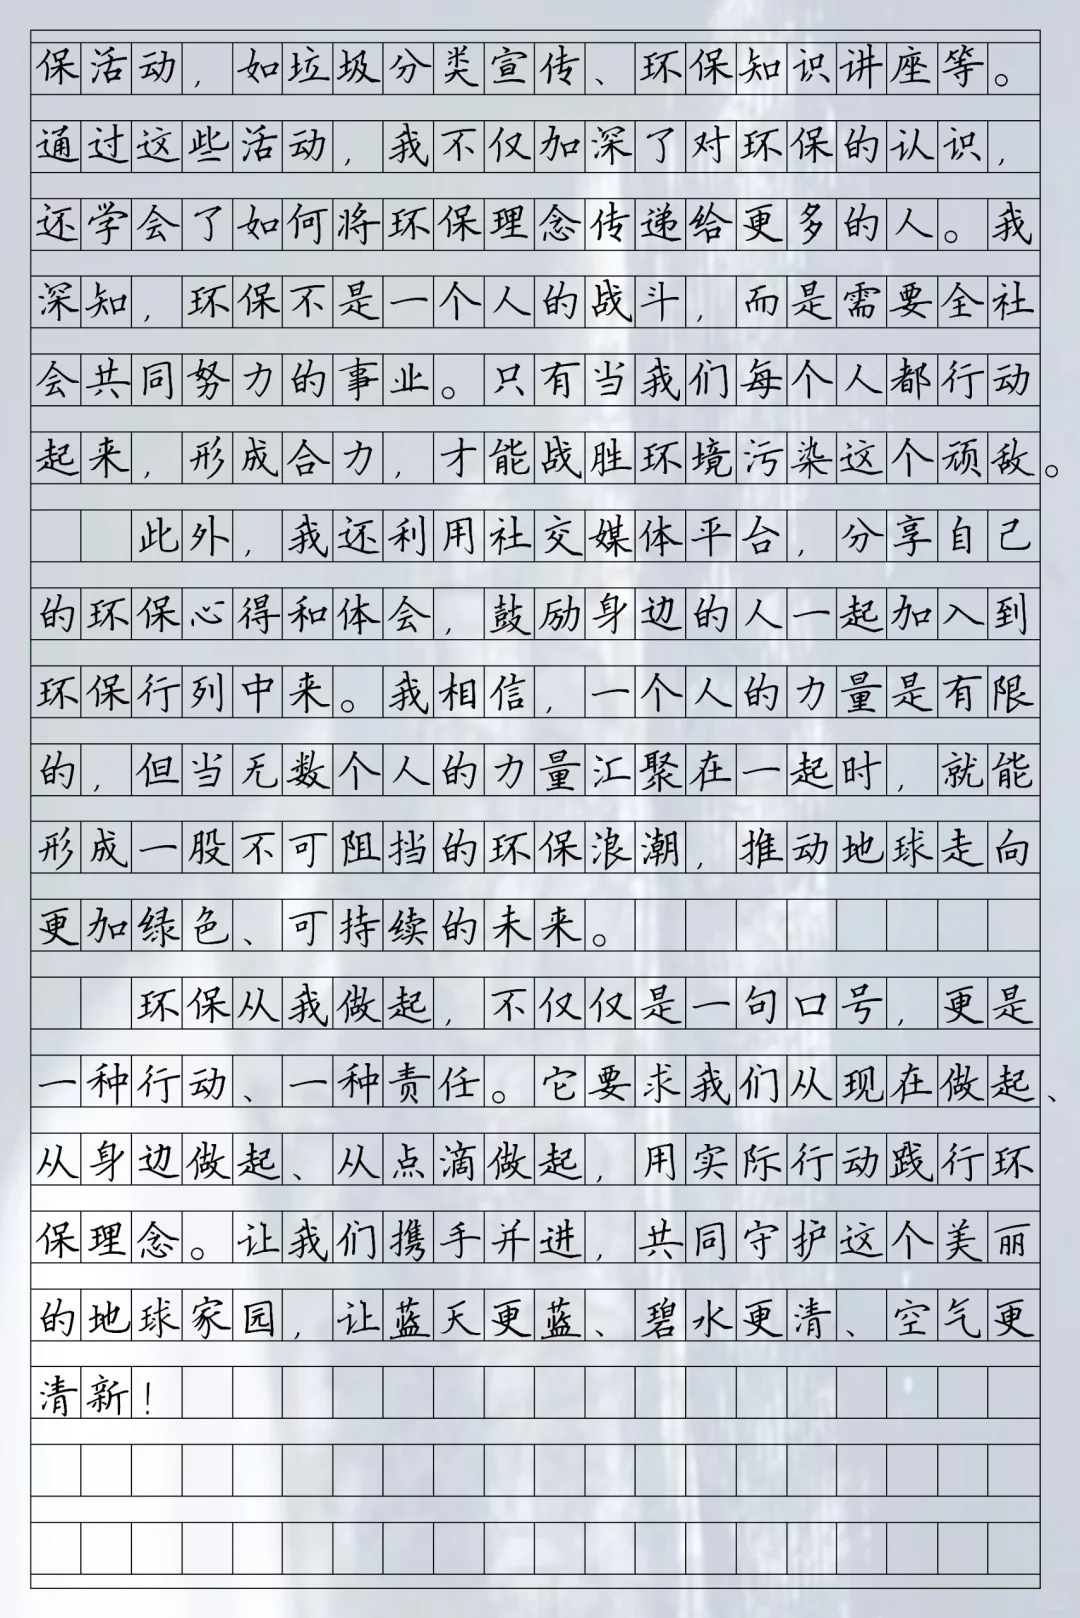 保活动，如垃圾分类宣传、环保知识讲座等。
通过这些活动，我不仅加深了对环保的认识，
还学会了如何将环保理念传递给更多的人。我
深知，环保不是一个人的战斗，而是需要全社
会共同努力的事业。只有当我们每个人都行动
起来，形成合力，才能战胜环境污染这个顽敌。
此外，我还利用社交媒体平台，分享自己
的环保心得和体会，鼓励身边的人一起加入到
环保行列中来。我相信，一个人的力量是有限
的，但当无数个人的力量汇聚在一起时，就能
形成一股不可阻挡的环保浪潮，推动地球走向
更加绿色、可持续的未来。
环保从我做起，不仅仅是一句口号，更是
一种行动、一种责任。它要求我们从现在做起、
从身边做起、从点滴做起，用实际行动践行环
保理念。让我们携手并进，共同守护这个美丽
的地球家园，让蓝天更蓝、碧水更清、空气更
清新！